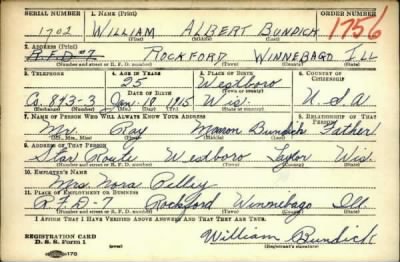 SERIAL NUMBER 1. NAME (Print) ORDER NUMBER
1702 WILLIAM ALBERT BUNDICK 1756
(First) (Middle) (Last)
2. ADDRESS (Print)
R.F.D #7 ROCKFORD WINNEBAGO ILL
(Number and street or R. F. D. number) (Town) (County) (State)
3. TELEPHONE 4. AGE IN YEARS 5. PLACE OF BIRTH 6. COUNTRY OF CITIZENSHIP
25 Westboro
DATE OF BIRTH (Town or county)
Co. 893-3 Jan. 18 1915 Wis. U.S.A
(Exchange) (Number) (Mo.) (Day) (Yr.) (State or country)
7. NAME OF PERSON WHO WILL ALWAYS KNOW YOUR ADDRESS 8. RELATIONSHIP OF THAT PERSON
Mr. Ray Bundick Father
(Mr., Mrs., Miss) (First) (Middle) (Last)
9. ADDRESS OF THAT PERSON
Star Route Westboro Taylor Wis.
(Number and street or R. F. D. number) (Town) (County) (State)
10. EMPLOYER'S NAME
Mrs. Nora
11. PLACE OF EMPLOYMENT OR BUSINESS
R.F.D-7 Rockford Winnebago Ill.
(Number and street or R. F. D. number) (Town) (County) (State)
I AFFIRM THAT I HAVE VERIFIED ABOVE ANSWERS AND THAT THEY ARE TRUE.
REGISTRATION CARD William Bundick
D. S. S. Form 1 (Registrant's signature)